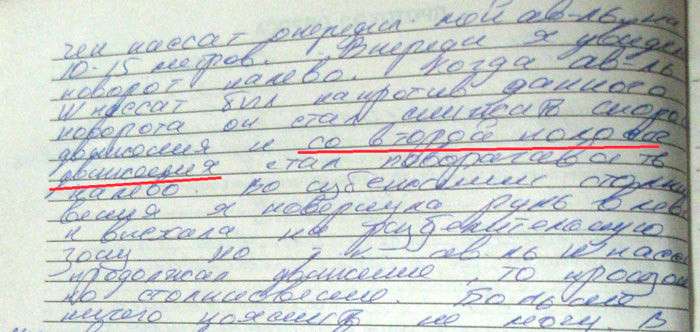 чем пассат опередил мой ав-ль на
10-15 метров. Впереди я увидел
поворот налево. Когда ав-ль
пассат был напротив данного
поворота он стал снижать скоро
движения и со второй полосы
движения стал поворачивать
налево. Во избежании столкно
вения я повернула руль влево
и выехала на разделительную
зону но т к ав-ль пасса
продолжал движение, то произош
ло столкновение. Больше
ничего пояснить не могу. В